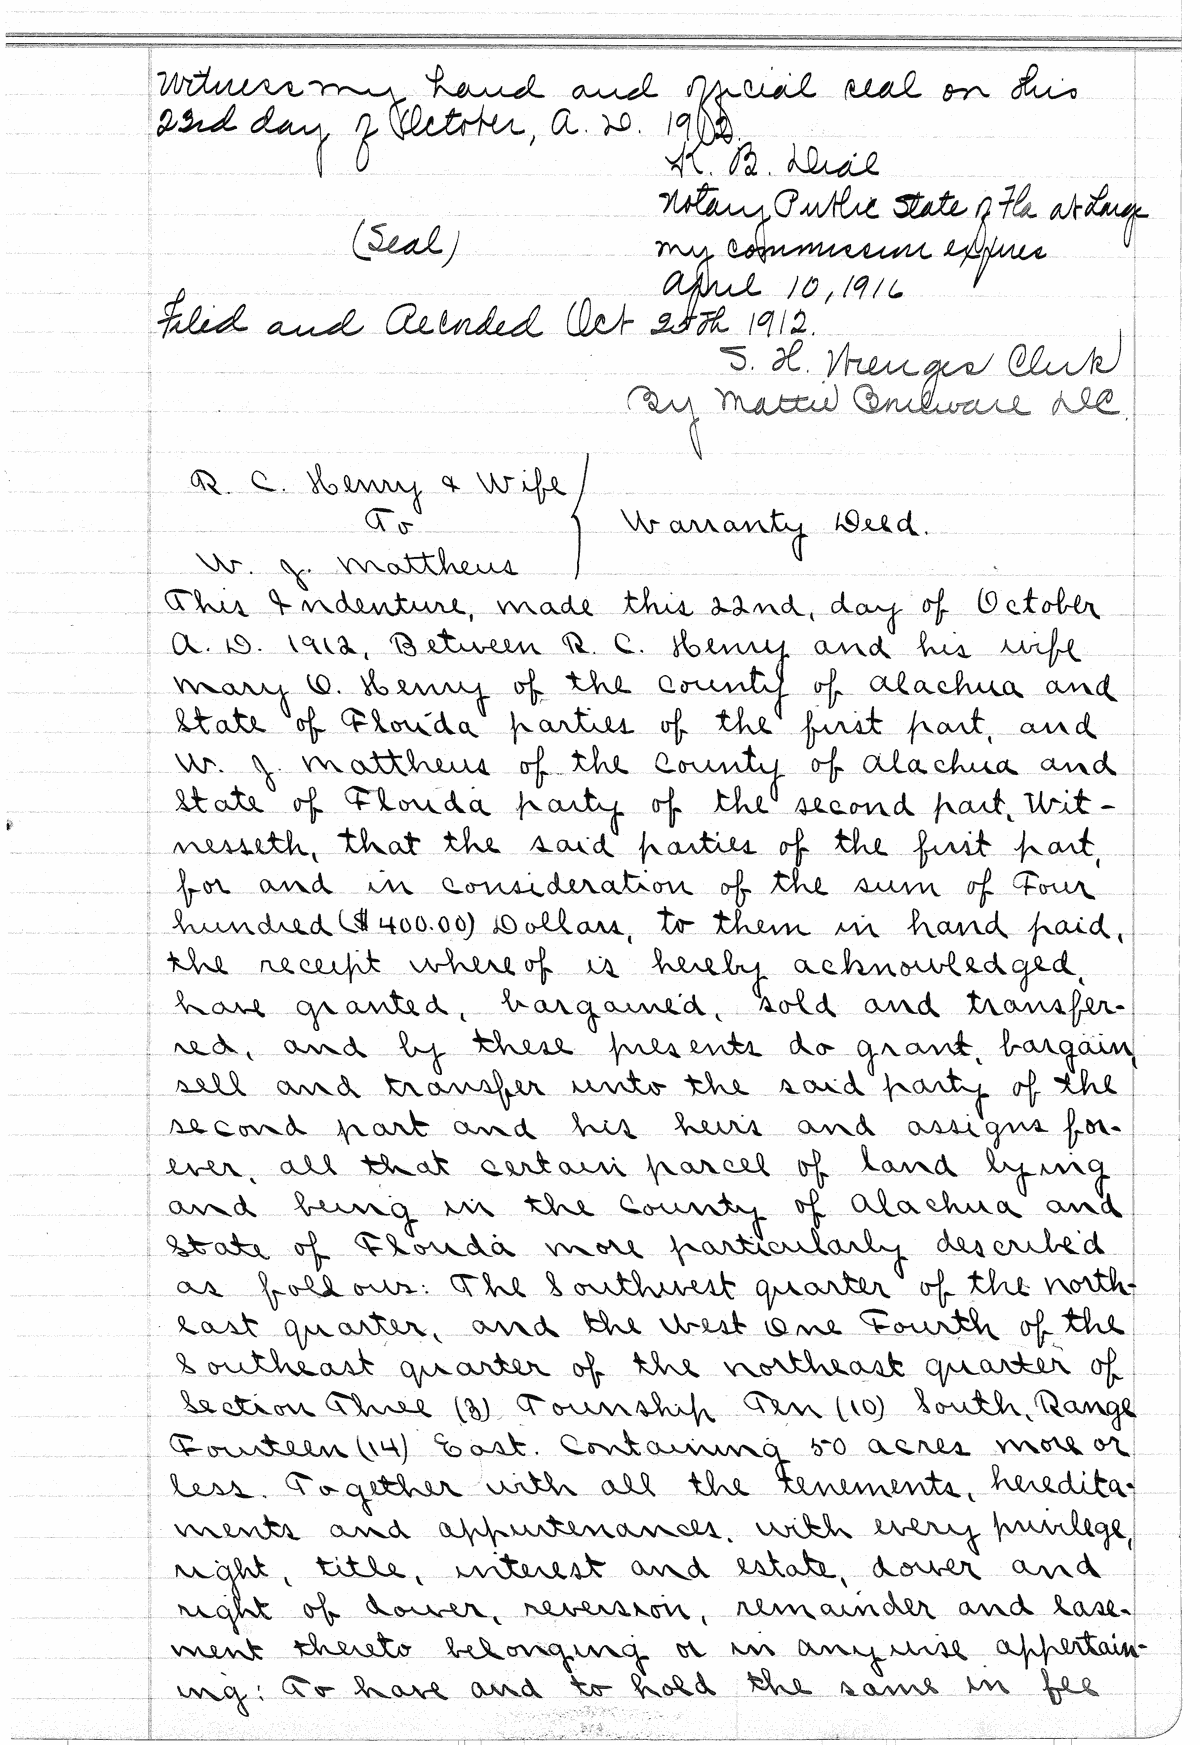 Witness my hand and official seal on this
23rd day of October, A. D. 1912.
K. B. Dial
Notary Public State of Fla at Large
(Seal)
my commission expires
April 10, 1916
Filed and Recorded Oct 25th 1912.
S. H. Wienges Clerk
By Mattie DC.
R. C. Henry & Wife
To
Warranty Deed.
W. J. Matthews
This Indenture, made this 22nd, day of October
A. D. 1912, Between R. C. Henry and his wife
Mary O. Henry of the County of Alachua and
State of Florida parties of the first part, and
W. J. Matthews of the County of Alachua and
State of Florida party of the second part, Wit-
nesseth, that the said parties of the first part,
for and in consideration of the sum of Four
hundred ($400.00) Dollars, to them in hand paid,
the receipt whereof is hereby acknowledged,
have granted, bargained, sold and transfer-
red, and by these presents do grant, bargain,
sell and transfer unto the said party of the
second part and his heirs and assigns for-
ever, all that certain parcel of land lying
and being in the County of Alachua and
State of Florida more particularly described
as follows: The Southwest quarter of the north-
east quarter, and the West One Fourth of the
Southeast quarter of the northeast quarter of
Section Three (3) Township Ten (10) South, Range
Fourteen (14) East. Containing 50 acres more or
less. Together with all the tenements, heredita-
ments and appurtenances, with every privilege,
right, title, interest and estate, dower and
right of dower, reversion, remainder and ease-
ment thereto belonging or in anywise appertain-
ing: To have and to hold the same in fee